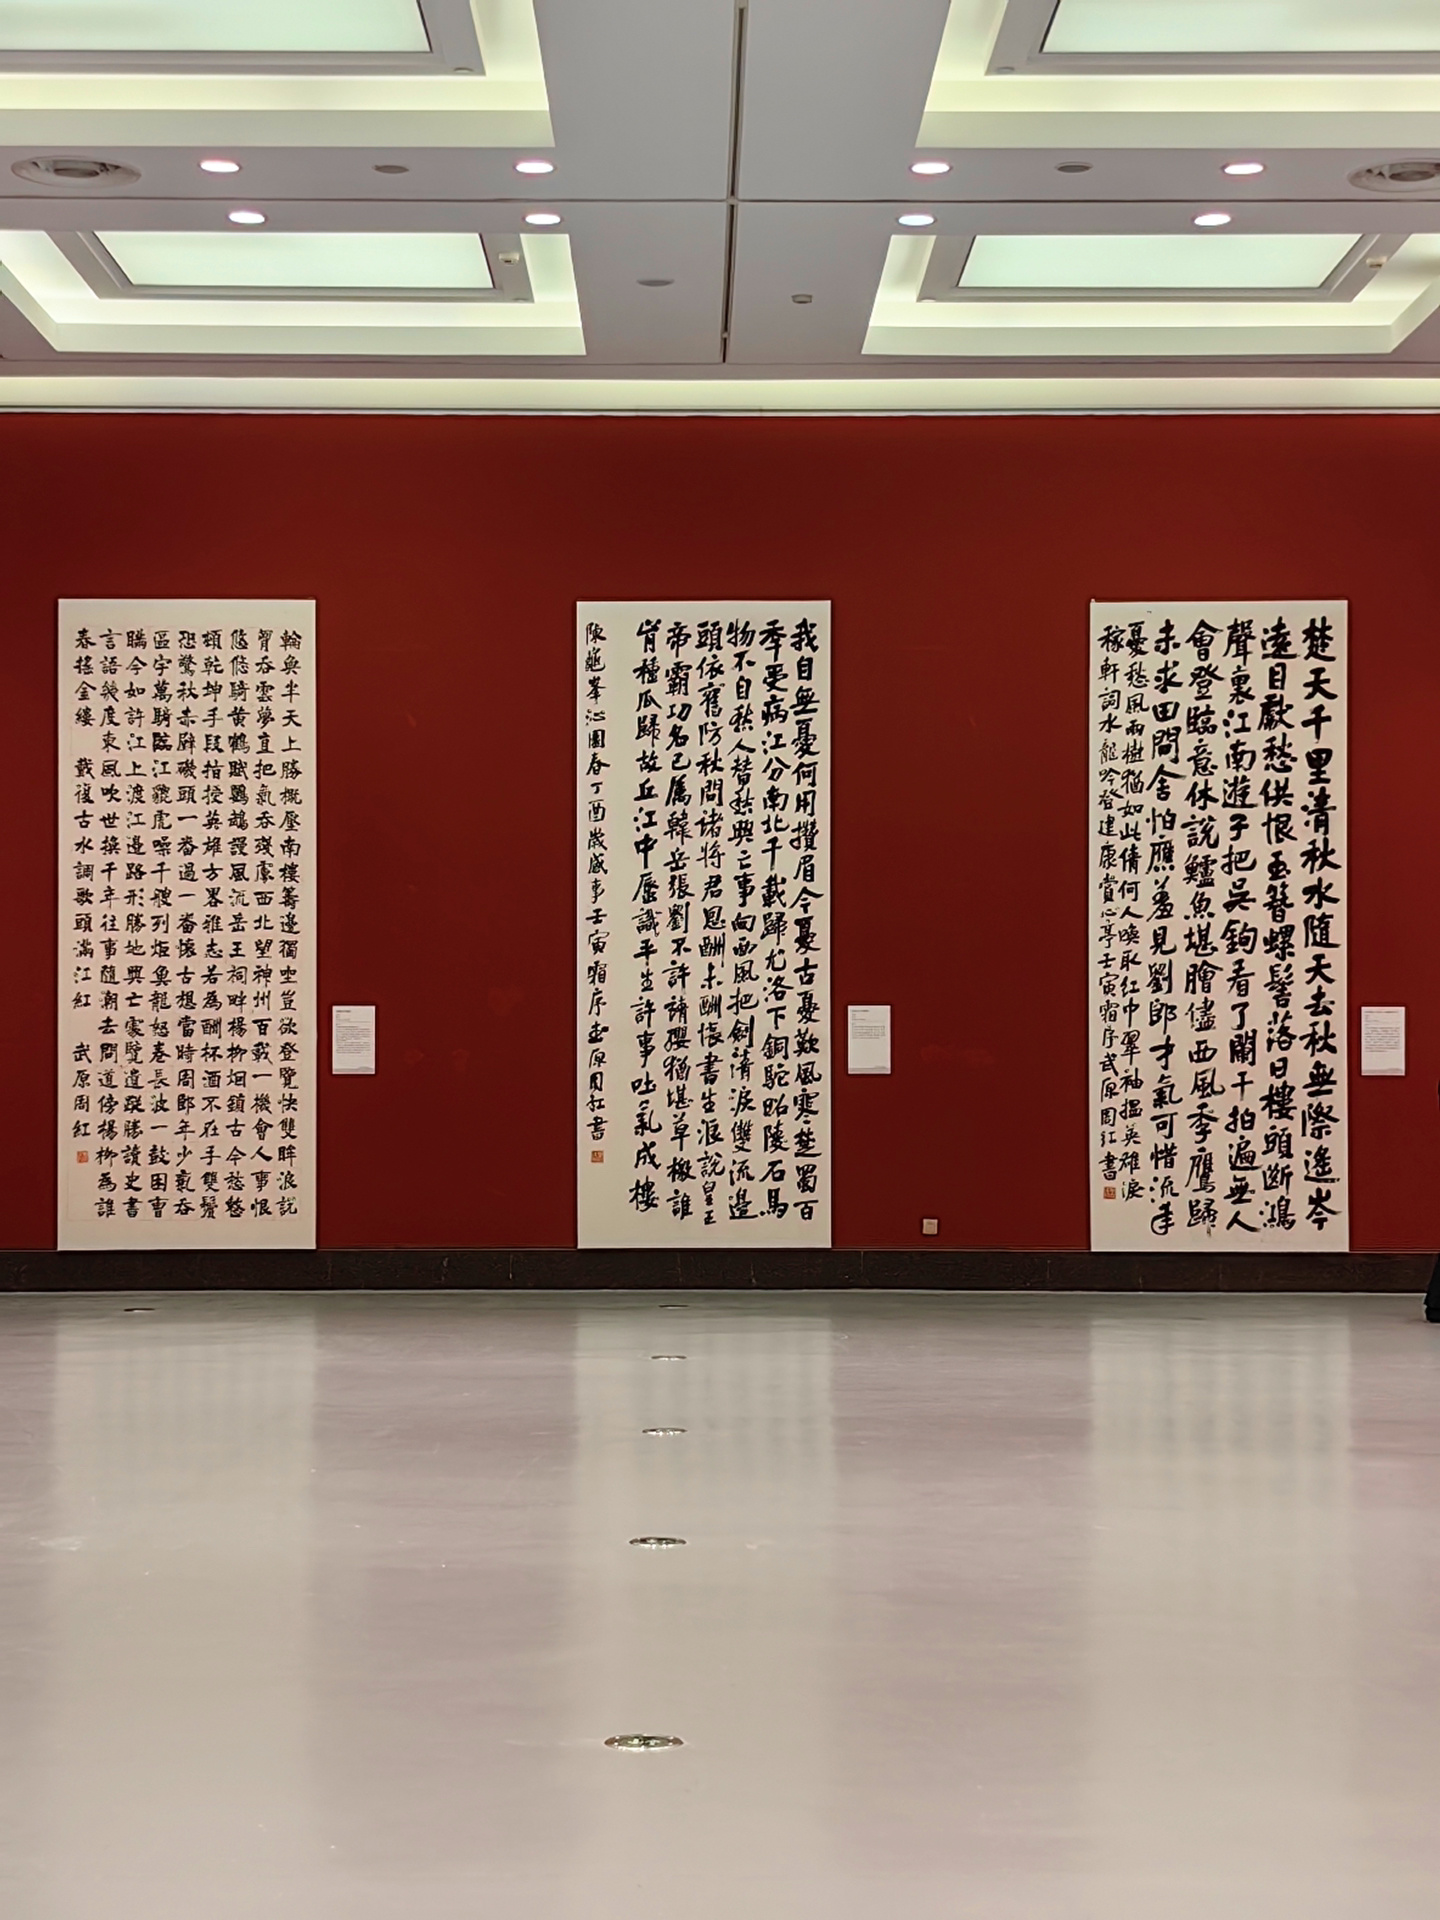 楚天千里清秋水隨天去秋無際遙岑
遠目獻愁供恨玉簪螺髻落日樓頭斷鴻
聲裏江南遊子把吳鉤看了闌干拍遍無人
會登臨意休說鱸魚堪膾儘西風季鷹歸
未求田問舍怕應羞見劉郎才氣可惜流年
憂愁風雨樹猶如此倩何人喚取紅巾翠袖搵英雄淚
稼軒詞水龍吟登建康賞心亭壬寅霜序武原周紅書
我自無憂何用攢眉今憂古憂歎風寒楚蜀百
年受病江分南北千載歸尤洛下銅駝昭陵石馬
物不自愁人替愁興亡事向西風把劍清淚雙流邊
頭依舊防秋問諸將君恩酬未酬悵書生浪說皇王
帝霸功名已屬韓岳張劉不許請纓猶堪草檄誰
肯種瓜歸故丘江中蜃識平生許事吐氣成樓
陳龜峯沁園春丁酉歲感事壬寅霜序武原周紅書
輪奐半天上勝概壓南樓籌邊獨坐豈欲登覽快雙眸浪說
胷吞雲夢直把氣吞殘虜西北望神州百載一機會人事恨
悠悠騎黃鶴賦鸚鵡謾風流岳王祠畔楊柳烟鎖古今愁整
頓乾坤手段指授英雄方畧雅志若為酬杯酒不在手雙鬢
恐驚秋赤壁磯頭一番過一番懷古想當時周郎年少氣吞
區宇萬騎臨江貔虎噪千艘列炬魚龍怒卷長波一鼓困曹
瞞今如許江上渡江邊路形勝地興亡處覽遺蹤勝讀史書
言語幾度東風吹世換千年往事隨潮去問道傍楊柳為誰
春搖金縷 戴復古水調歌頭滿江紅 武原周紅